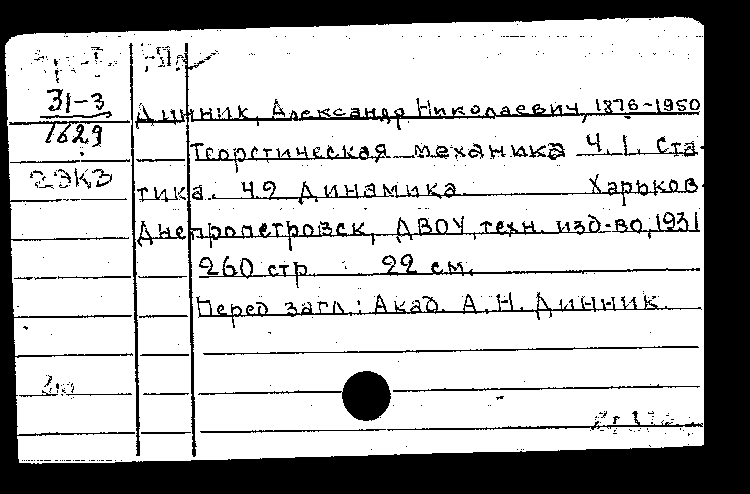 31-3
1629
2ЭКЗ
Динник, Александр Николаевич, 1876-1950
Теоретическая механика Ч.1. Ста-
тика. Ч.2 Динамика. Харьков-
Днепропетровск, ДВОУ, техн. изд-во, 1931
260 стр. 22 см.
Перед загл.: Акад. А.Н. Динник.